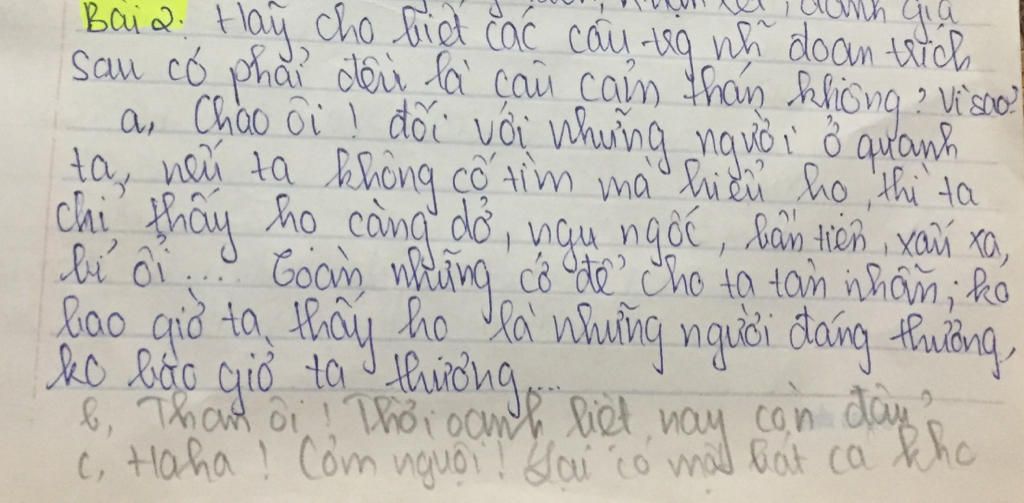 nhận xét, đánh giá
Bài 2: Hãy cho biết các câu trg nh đoạn trích
sau có phải đều là câu cảm thán không? Vì sao?
a, Chao ôi! đối với những người ở quanh
ta, nếu ta không cố tìm mà hiểu họ, thì ta
chỉ thấy họ càng dở, ngu ngốc, bần tiện, xấu xa,
bỉ ổi... toàn những cớ để cho ta tàn nhẫn; ko
bao giờ ta thấy họ là những người đáng thương,
ko bao giờ ta thương...
b, Than ôi! Thời oanh liệt nay còn đâu?
c, Haha! Cơm nguội! Lại có một bát cá kho